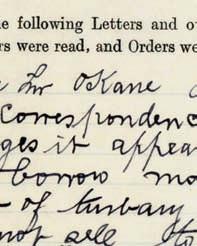 e following Letters and o
rs were read, and Orders we
OKane
Correspondenc
ges it appea
borrow mo
of turbary
not sell to